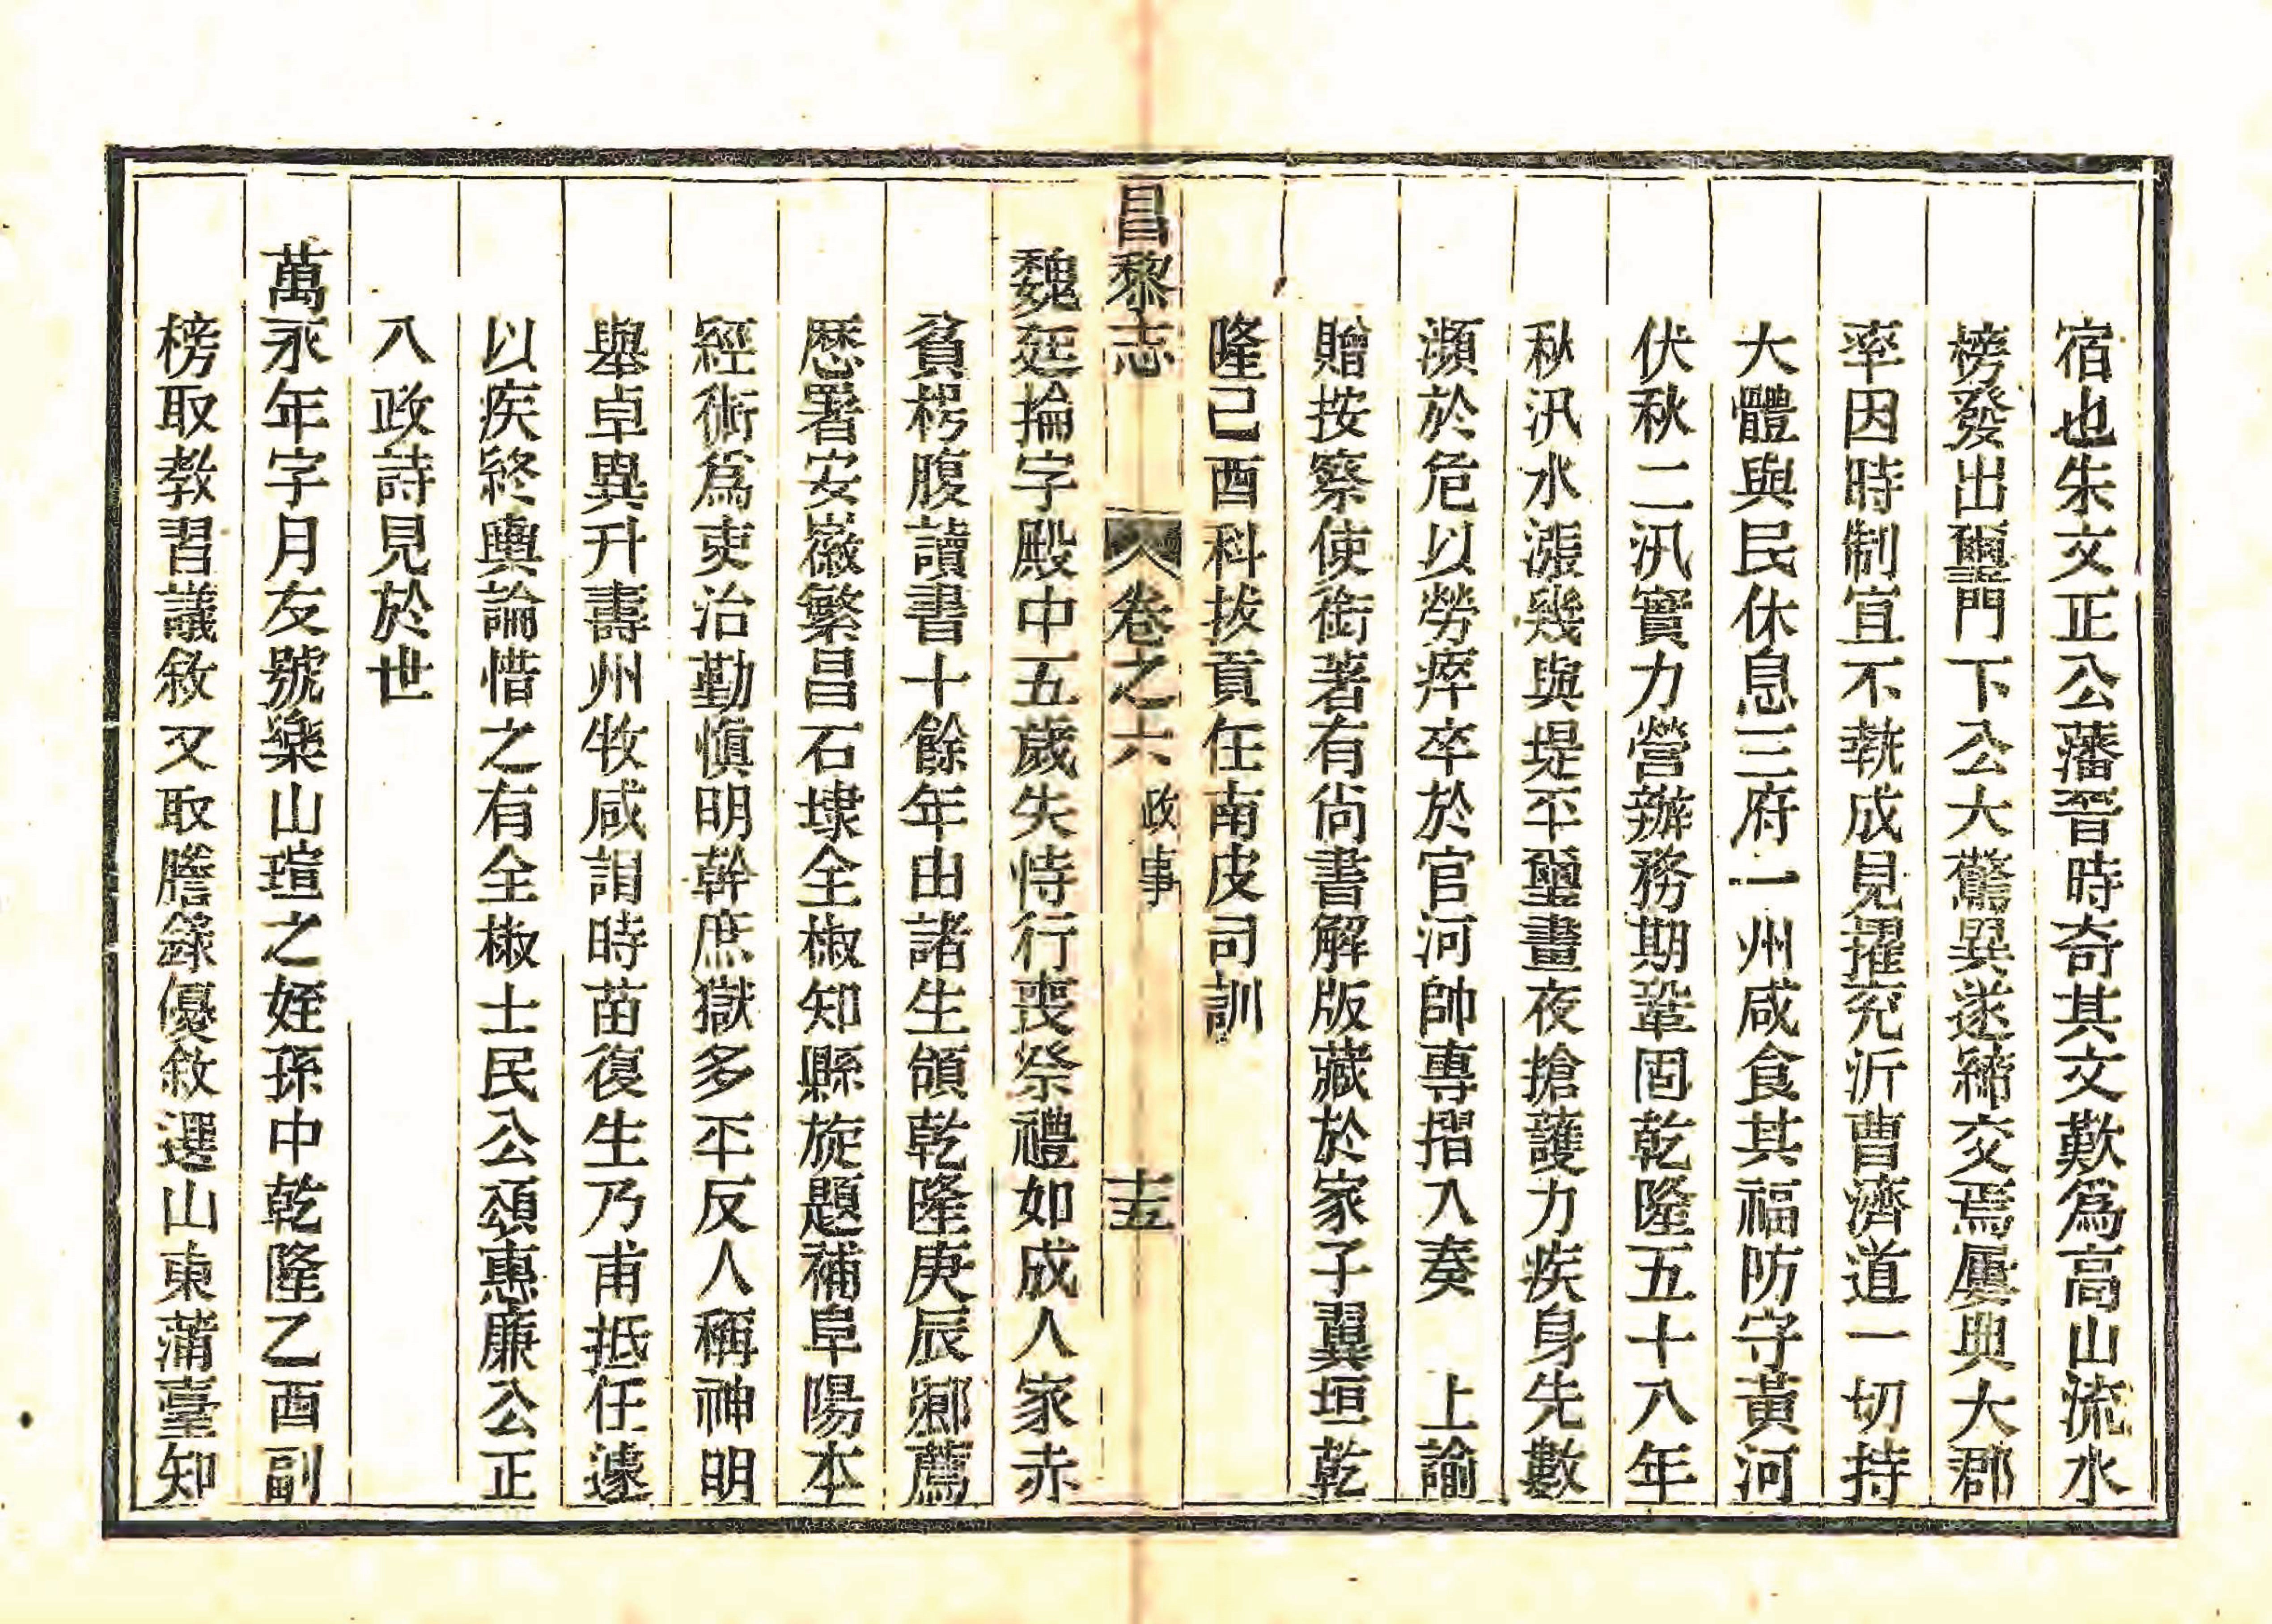 宿也朱文正公藩晉時奇其文歎爲高山流水
榜發出璽門下公大驚異遂締交焉屢典大郡
率因時制宜不執成見擢兖沂曹濟道一切持
大體與民休息三府一州咸食其福防守黃河
伏秋二汛實力營辦務期鞏固乾隆五十八年
秋汛水漲幾與堤平璽晝夜搶護力疾身先數
瀕於危以勞瘁卒於官河帥專摺入奏 上諭
贈按察使銜著有尚書解版藏於家子翼垣乾
隆己酉科拔貢任南皮司訓
昌黎志 卷之六 政事 十五
魏廷掄字殿中五歲失恃行喪祭禮如成人家赤
貧枵腹讀書十餘年由諸生領乾隆庚辰鄉薦
歷署安徽繁昌石埭全椒知縣旋題補阜陽本
經術爲吏治勤愼明幹庶獄多平反人稱神明
舉卓異升壽州牧咸謂時苗復生乃甫抵任遽
以疾終輿論惜之有全椒士民公頌惠廉公正
八政詩見於世
萬永年字月友號樂山瑄之姪孫中乾隆乙酉副
榜取教習議敘又取謄錄優敘選山東蒲臺知